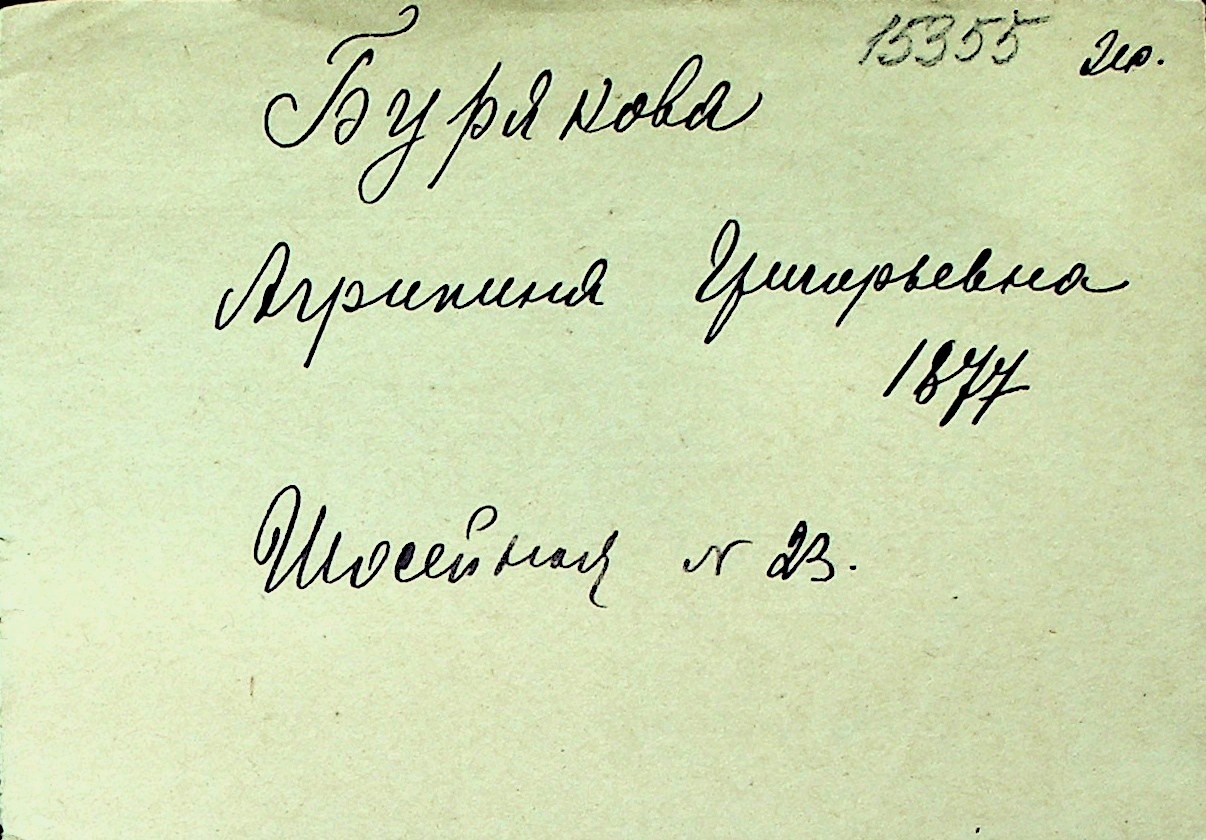 15355 гр.
Бурякова
Агрипина Григорьевна
1877
Шосейная N 23.